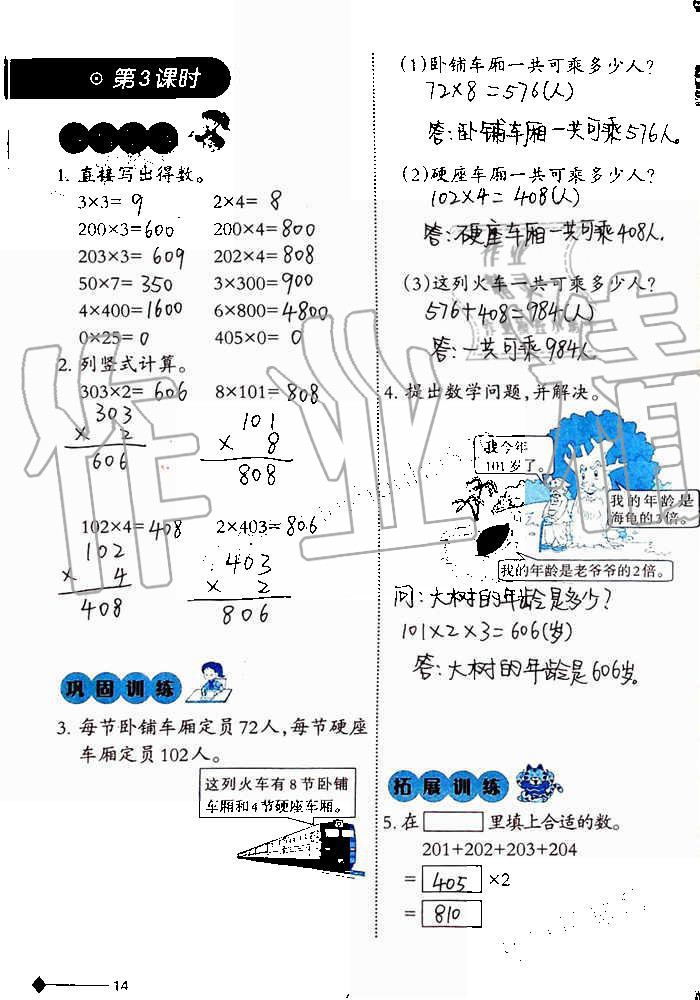 第3课时
1. 直接写出得数。
3×3=9 2×4=8
200×3=600 200×4=800
203×3=609 202×4=808
50×7=350 3×300=900
4×400=1600 6×800=4800
0×25=0 405×0=0
2. 列竖式计算。
303×2=606 8×101=808
303 101
× 2 × 8
606 808
102×4=408 2×403=806
102 403
× 4 × 2
408 806
巩固训练
3. 每节卧铺车厢定员72人,每节硬座
车厢定员102人。
这列火车有8节卧铺
车厢和4节硬座车厢。
14
(1)卧铺车厢一共可乘多少人?
72×8=576(人)
答:卧铺车厢一共可乘576人。
(2)硬座车厢一共可乘多少人?
102×4=408(人)
答:硬座车厢一共可乘408人.
(3)这列火车一共可乘多少人?
576+408=984(人)
答:一共可乘984人.
4. 提出数学问题,并解决。
我今年
101岁了。
我的年龄是
海龟的3倍。
我的年龄是老爷爷的2倍。
问:大树的年龄是多少?
101×2×3=606(岁)
答:大树的年龄是606岁。
拓展训练
5. 在 里填上合适的数。
201+202+203+204
= 405 ×2
= 810
作业精